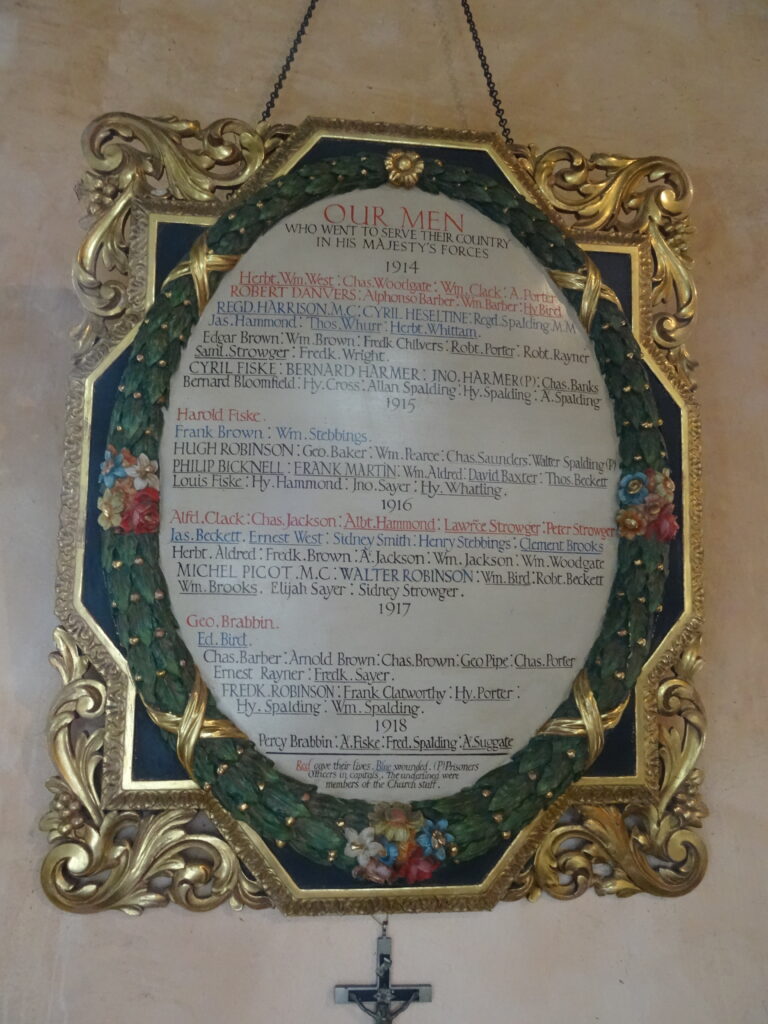 OUR MEN
WHO WENT TO SERVE THEIR COUNTRY
IN HIS MAJESTY'S FORCES
1914
Herbt. Wm. West : Chas. Woodgate : Wm. Clack : A. Porter
ROBERT DANVERS : Alphonso Barber : Wm. Barber : Hy. Bird
REGD. HARRISON. M.C : CYRIL HESELTINE : Regd. Spalding M.M
Jas. Hammond : Thos. Whurr : Herbt. Whittam.
Edgar Brown : Wm. Brown : Fredk Chilvers : Robt. Porter : Robt. Rayner
Saml. Strowger : Fredk. Wright.
CYRIL FISKE : BERNARD HARMER : JNO. HARMER (P) : Chas. Banks
Bernard Bloomfield : Hy. Cross : Allan Spalding : Hy. Spalding : A. Spalding
1915
Harold Fiske.
Frank Brown : Wm. Stebbings.
HUGH ROBINSON : Geo. Baker : Wm. Pearce : Chas. Saunders : Walter Spalding (P)
PHILIP BICKNELL : FRANK MARTIN : Wm. Aldred : David Baxter : Thos. Beckett
Louis Fiske : Hy. Hammond : Jno. Sayer : Hy. Whatling.
1916
Alfd. Clack : Chas. Jackson : Albt. Hammond : Lawrce Strowger : Peter Strowger
Jas. Beckett. Ernest West : Sidney Smith : Henry Stebbings : Clement Brooks
Herbt. Aldred : Fredk. Brown : A. Jackson : Wm. Jackson : Wm. Woodgate
MICHEL PICOT. M.C : WALTER ROBINSON : Wm. Bird : Robt. Beckett
Wm. Brooks. Elijah Sayer : Sidney Strowger.
1917
Geo. Brabbin.
Ed. Bird.
Chas. Barber : Arnold Brown : Chas. Brown : Geo Pipe : Chas. Porter
Ernest Rayner : Fredk. Sayer.
FREDK. ROBINSON : Frank Clatworthy : Hy. Porter :
Hy. Spalding : Wm. Spalding.
1918
Percy Brabbin : A. Fiske : Fred. Spalding : A. Suggate
Red gave their lives. Blue wounded. (P) Prisoners
Officers in capitals. The underlined were
members of the Church staff.